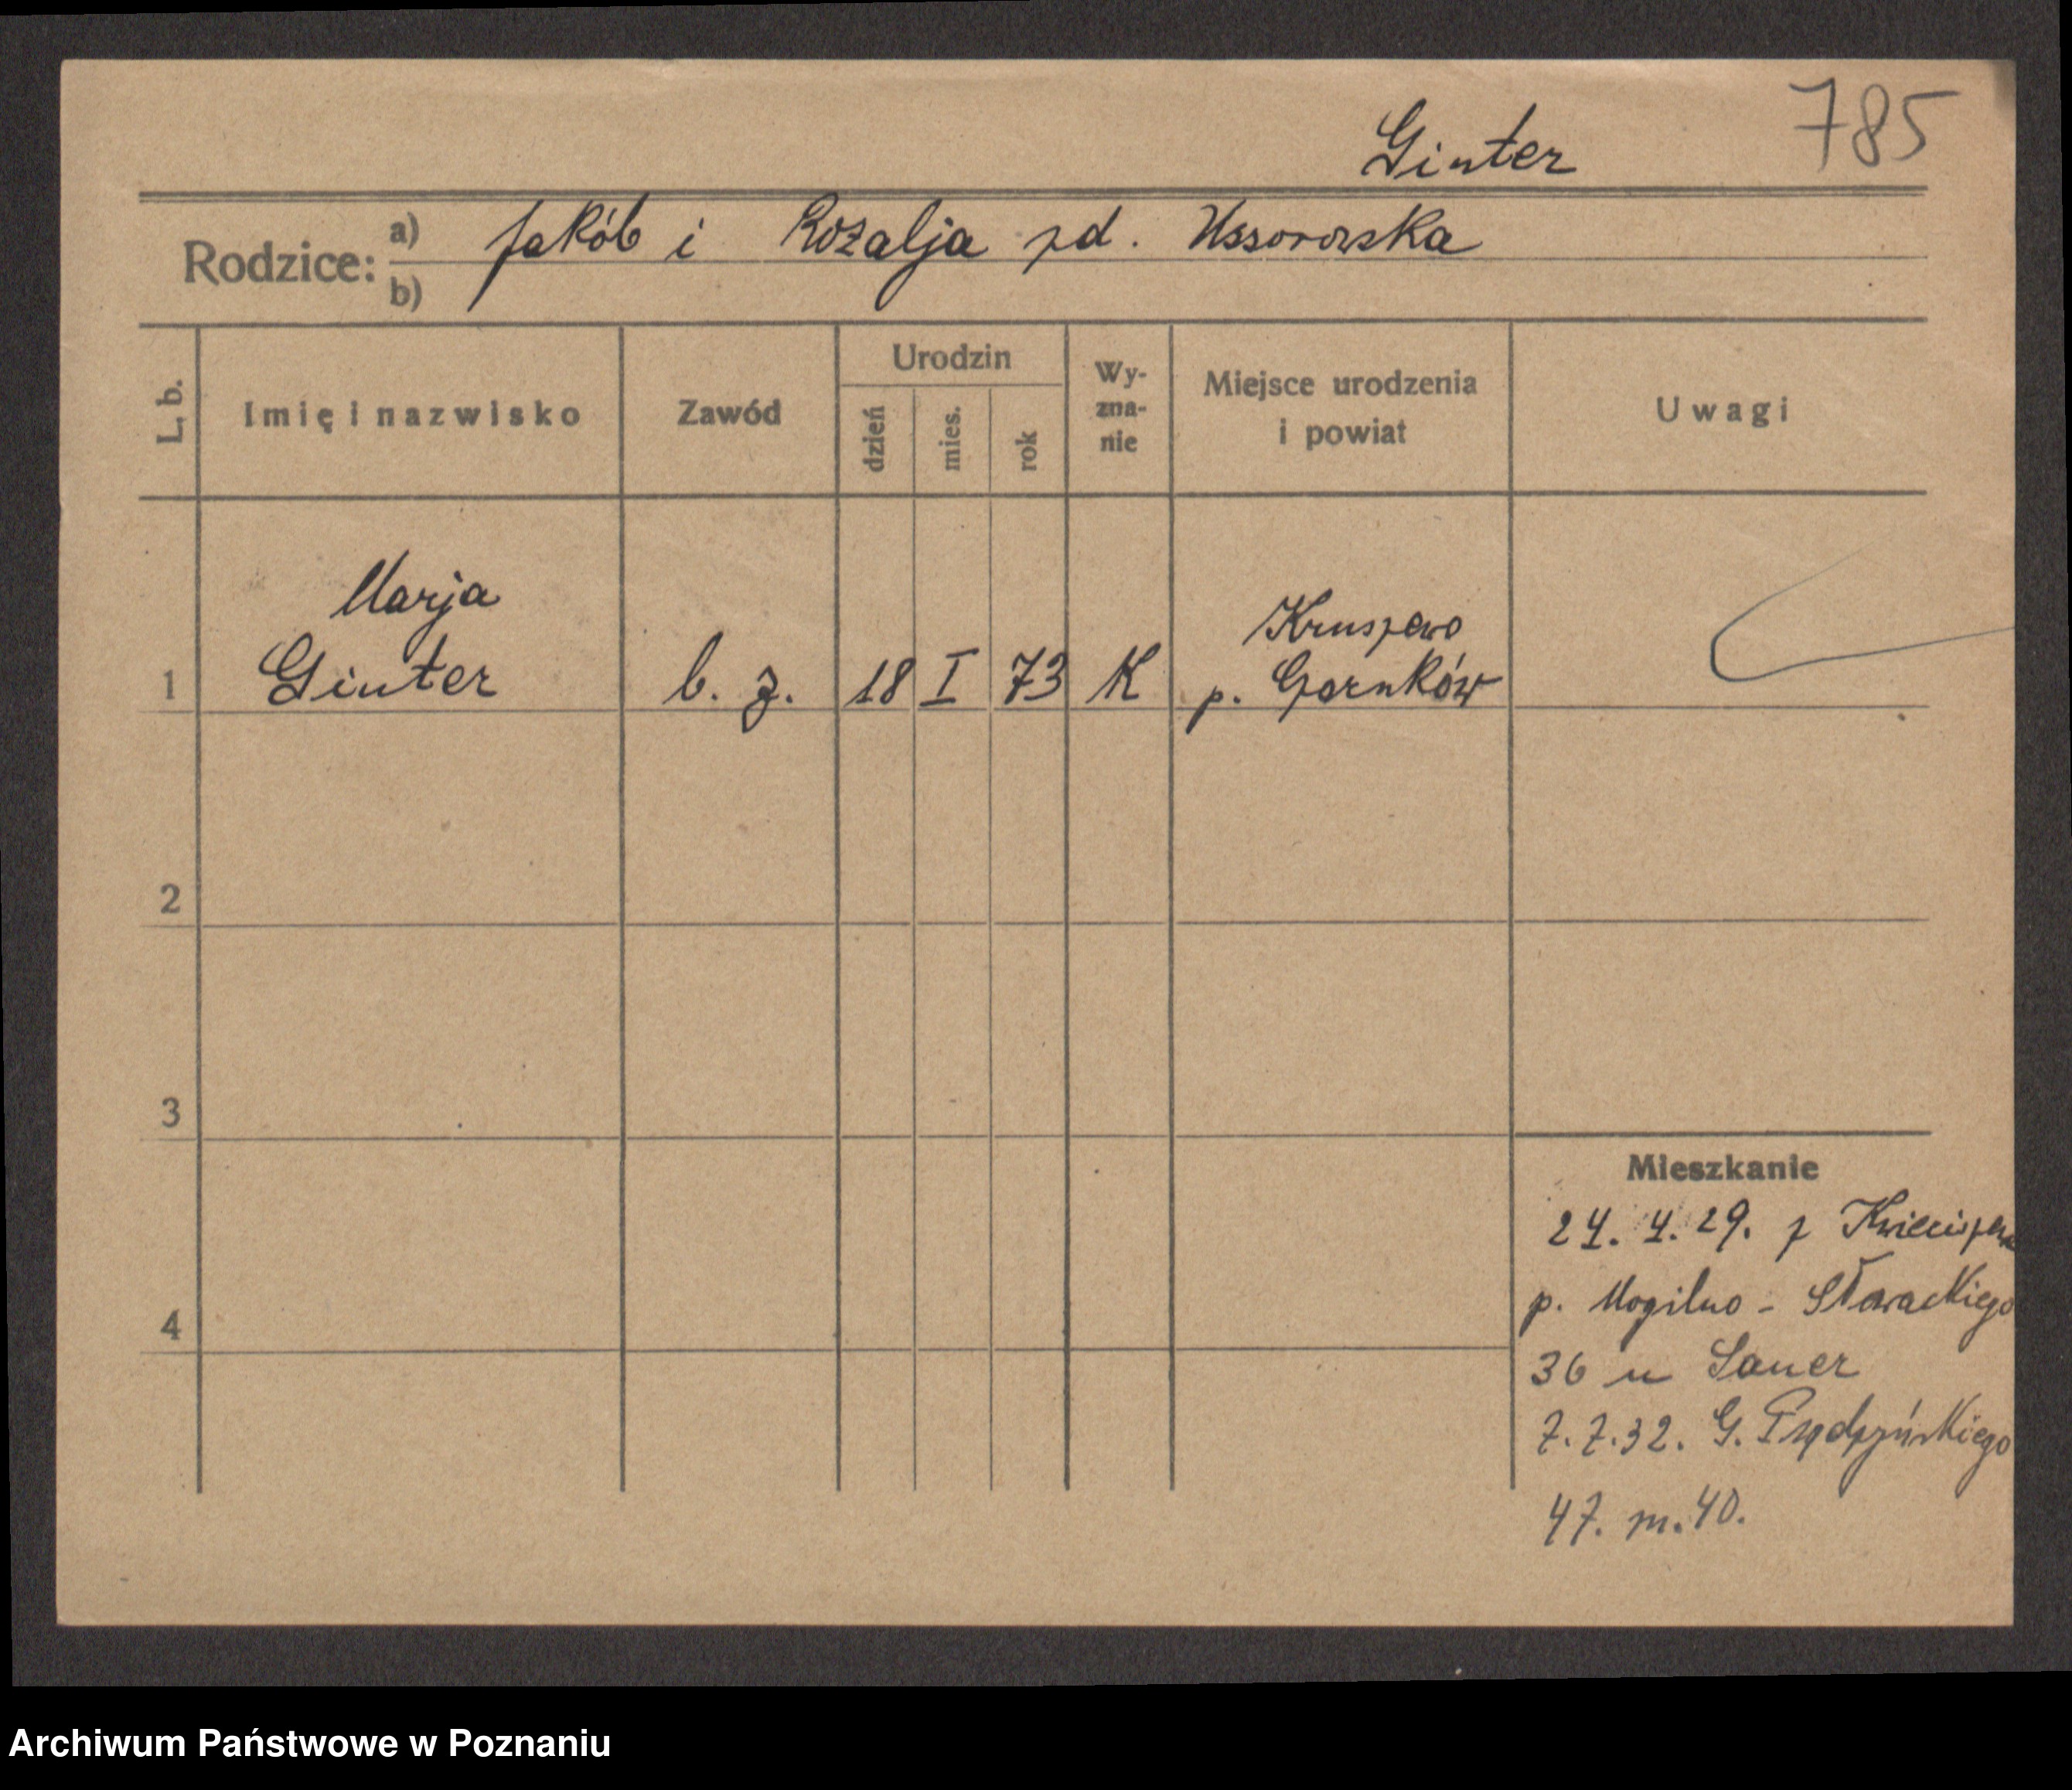 785
Ginter
Rodzice: a) Jakób i Rozalja zd. Ussorowska
b)
L. b. Imię i nazwisko Zawód Urodzin dzień mies. rok Wyznanie Miejsce urodzenia i powiat Uwagi
Marja Kruszewo
1 Ginter b. z. 18 I 73 K p. Czarnków
2
3
Mieszkanie
24. 4. 29. z Kwieciszewa
p. Mogilno - Słowackiego
4
36 u Sauer
7. 7. 32. G. Prądzyńskiego
47. m. 40.
Archiwum Państwowe w Poznaniu